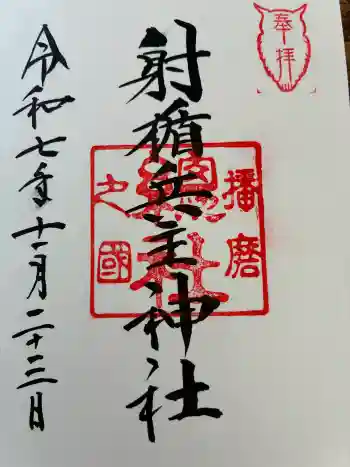 奉拝
射楯兵主神社
播磨
總社
之國
令和七年十一月二十三日